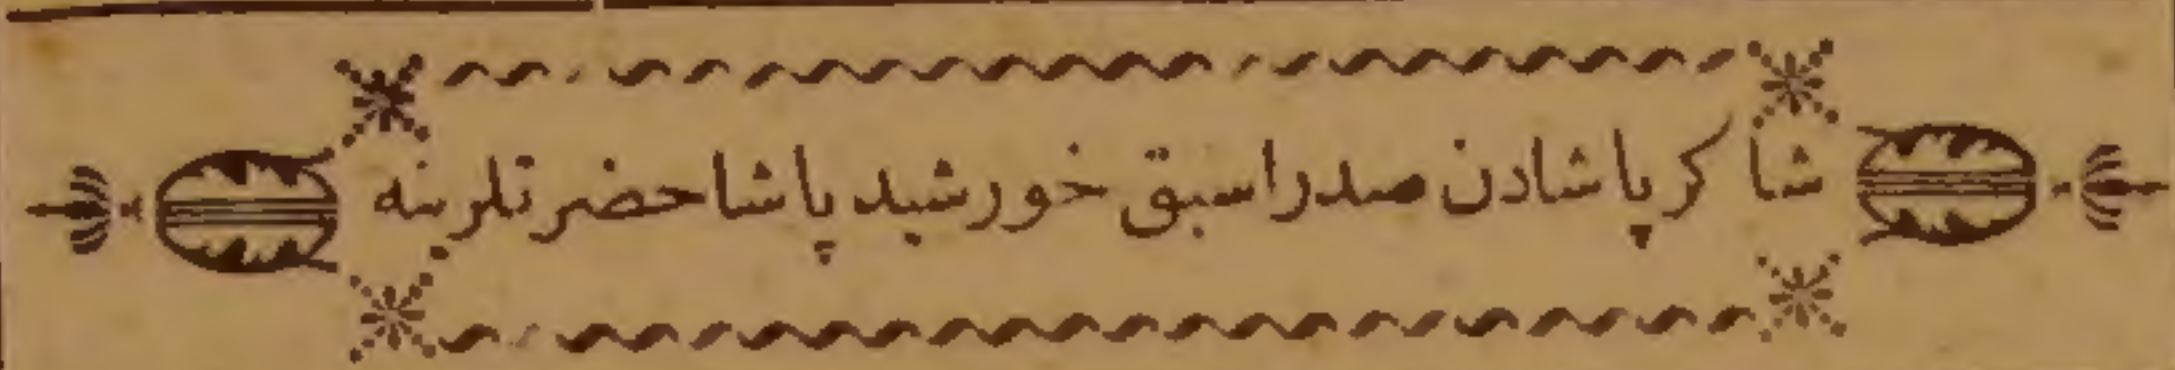 شاكر پاشادن صدر اسبق خورشید پاشا حضرتلرینه